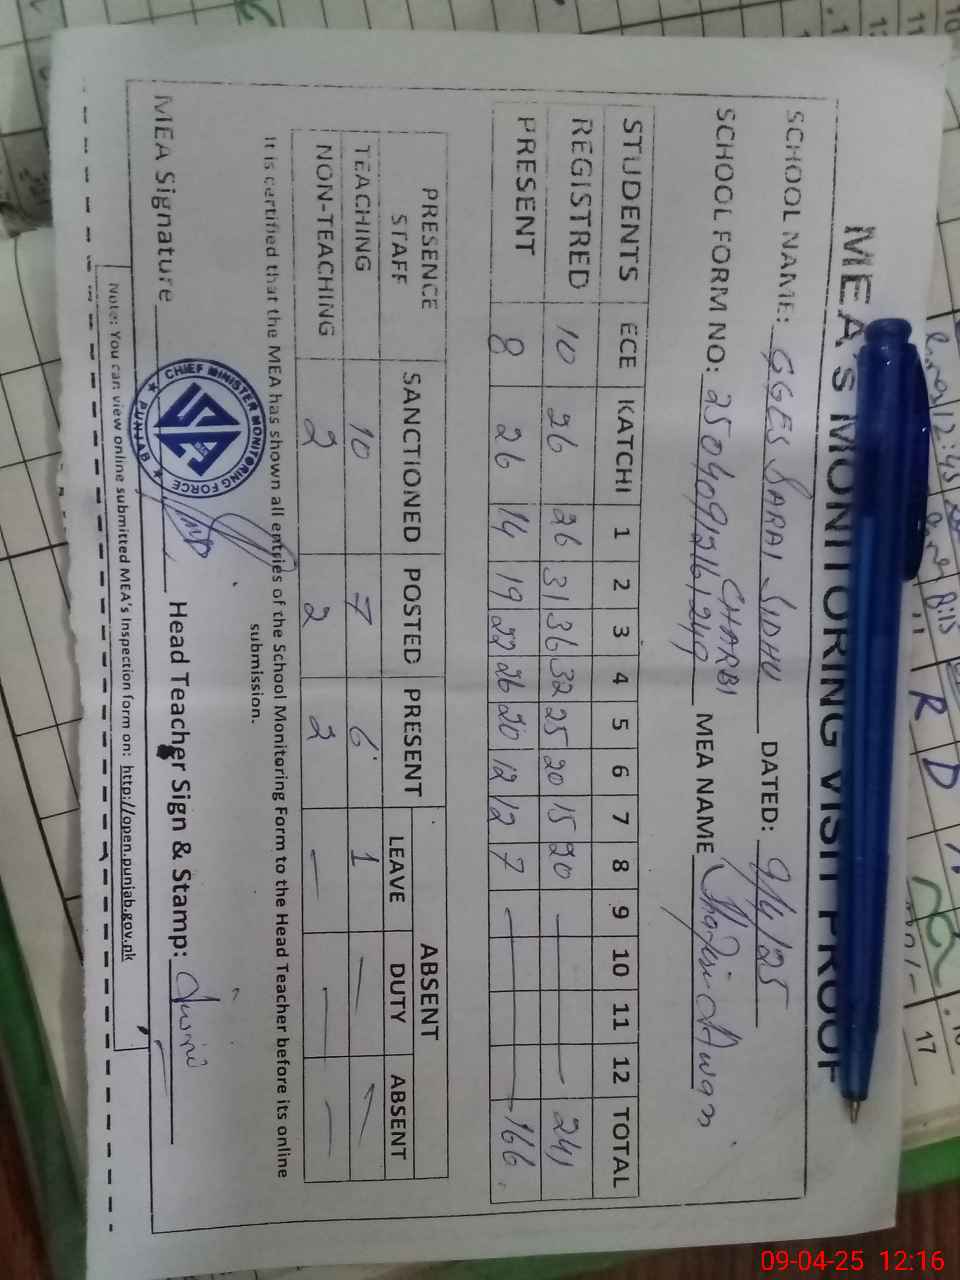 MEA'S MONITORING VISIT PROOF
SCHOOL NAME: GGES SARAI SIDHU DATED: 9/4/25
GHARBI
SCHOOL FORM NO: MEA NAME Awan
STUDENTS ECE KATCHI 1 2 3 4 5 6 7 8 9 10 11 12 TOTAL
REGISTRED 10 26 26 31 36 32 25 20 15 20 — 241
PRESENT 8 26 14 19 22 26 20 12 12 7 — 166
PRESENCE STAFF SANCTIONED POSTED PRESENT ABSENT
LEAVE DUTY ABSENT
TEACHING 10 7 6 1 — —
NON-TEACHING 2 2 2 — — —
It is certified that the MEA has shown all entries of the School Monitoring Form to the Head Teacher before its online
submission.
MEA Signature Head Teacher Sign & Stamp:
CHIEF MINISTER MONITORING FORCE
★ PUNJAB ★
Note: You can view online submitted MEA's Inspection form on: http://open.punjab.gov.pk
12:45
8:15
R D
17
09-04-25 12:16